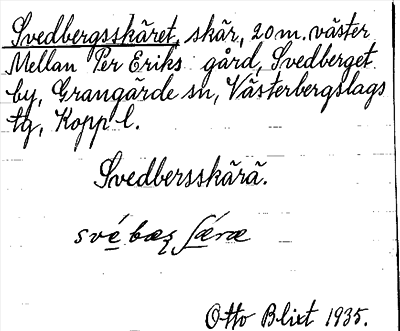 Svedbergsskäret, skär, 20 m. väster
Mellan Per Eriks gård, Svedberget
by, Grangärde sn, Västerbergslags
tg, Kopp l.
Svedbersskärä.
své bæʂ ʃæræ
Otto Blixt 1935.